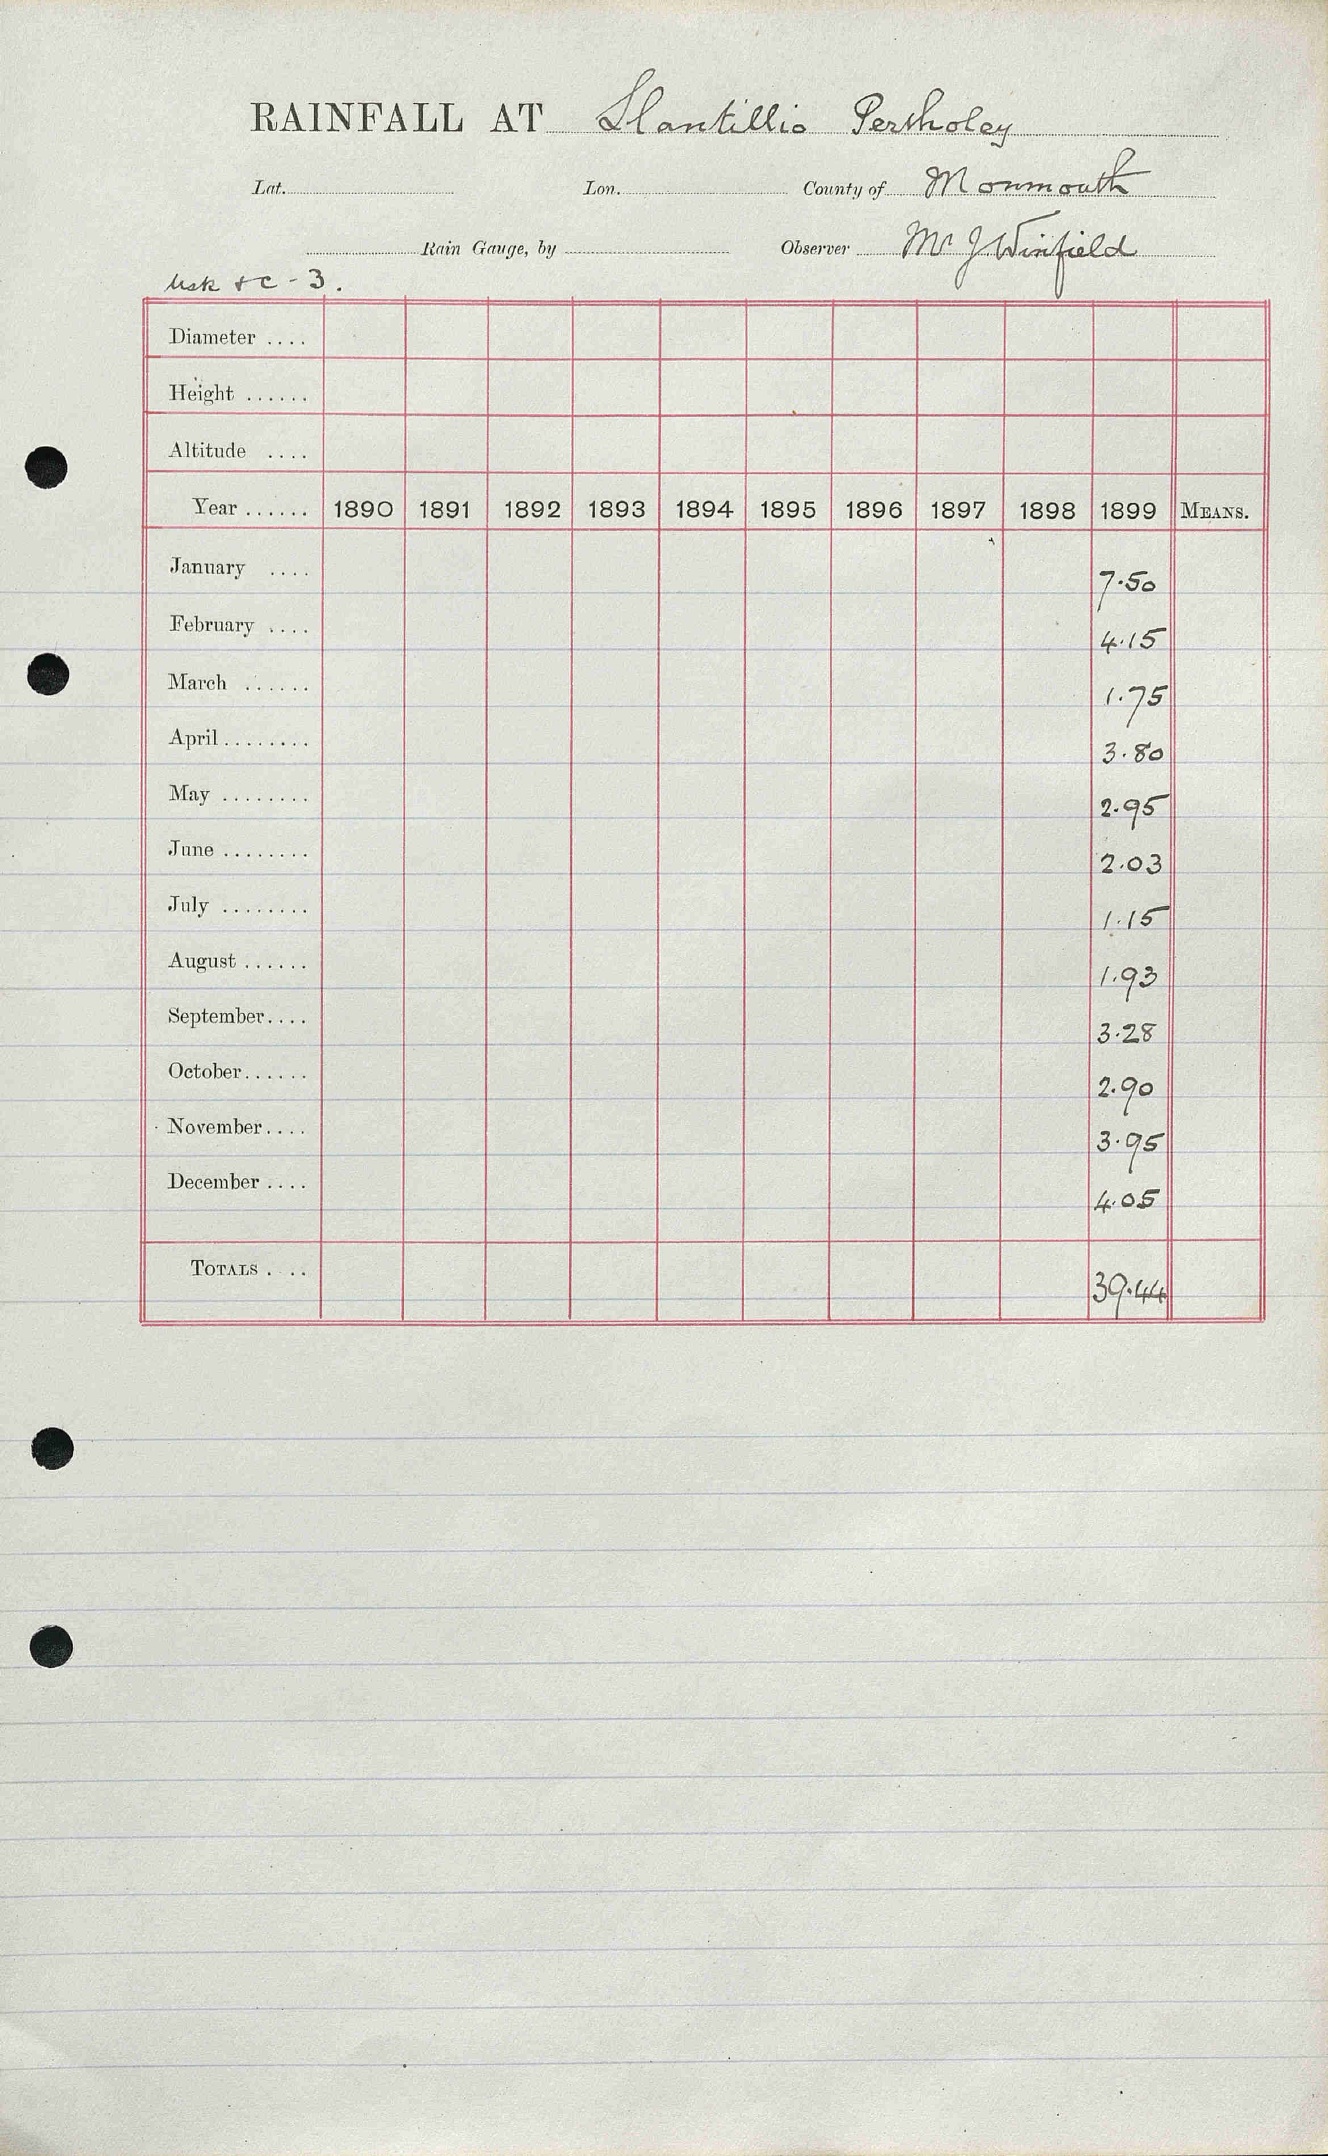 RAINFALL AT Llantillio Pertholey
Lat. Lon. County of Monmouth
Rain Gauge, by Observer Mr J. Winfield
Usk &c - 3.
Diameter ....
Height ......
Altitude ....
Year ...... 1890 1891 1892 1893 1894 1895 1896 1897 1898 1899 MEANS.
January .... 7.50
February .... 4.15
March ...... 1.75
April ........ 3.80
May ........ 2.95
June ........ 2.03
July ........ 1.15
August ...... 1.93
September.... 3.28
October...... 2.90
November.... 3.95
December .... 4.05
TOTALS .... 39.44